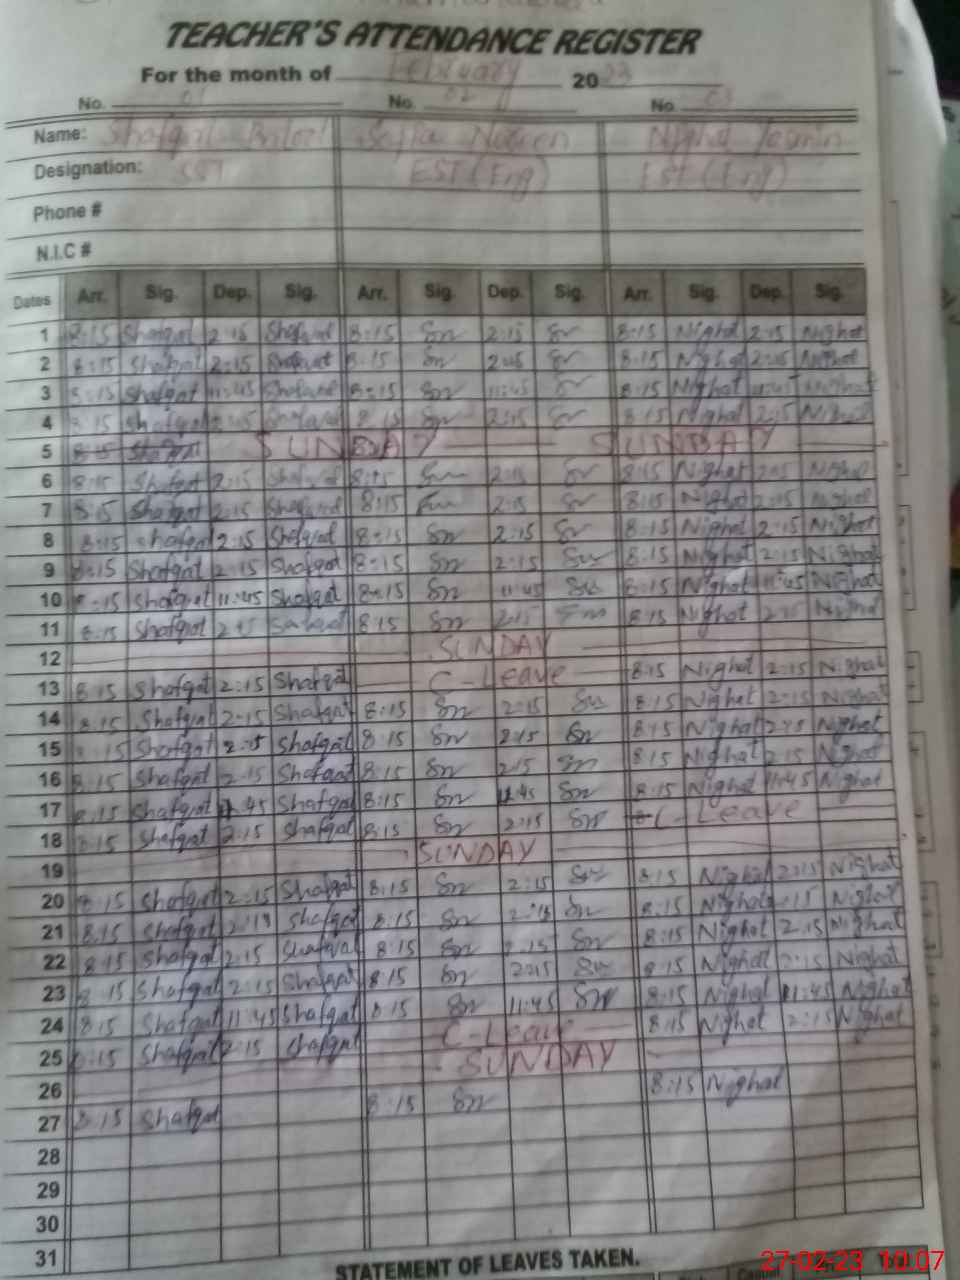 TEACHER'S ATTENDANCE REGISTER
For the month of February 2023
No. 01 No. 02 No. 03
Name: Shafqat Nighat
Designation: SST EST (Eng) EST (Eng)
Phone #
N.I.C #
Dates Arr. Sig. Dep. Sig. Arr. Sig. Dep. Sig. Arr. Sig. Dep. Sig.
1 8:15 Shafqat 2:15 Shafqat 8:15 Sn 2:15 Sn 8:15 Nighat 2:15 Nighat
2 8:15 Shafqat 2:15 Shafqat 8:15 Sn 2:15 Sn 8:15 Nighat 2:15 Nighat
3 8:15 Shafqat 11:45 Shafqat 8:15 Sn 11:45 Sn 8:15 Nighat 11:45 Nighat
4 8:15 Shafqat 2:15 Shafqat 8:15 Sn 2:15 Sn 8:15 Nighat 2:15 Nighat
5 8:15 Shafqat SUNDAY SUNDAY
6 8:15 Shafqat 2:15 Shafqat 8:15 Sn 2:15 Sn 8:15 Nighat 2:15 Nighat
7 8:15 Shafqat 2:15 Shafqat 8:15 Sn 2:15 Sn 8:15 Nighat 2:15 Nighat
8 8:15 Shafqat 2:15 Shafqat 8:15 Sn 2:15 Sn 8:15 Nighat 2:15 Nighat
9 8:15 Shafqat 2:15 Shafqat 8:15 Sn 2:15 Sn 8:15 Nighat 2:15 Nighat
10 8:15 Shafqat 11:45 Shafqat 8:15 Sn 11:45 Sn 8:15 Nighat 11:45 Nighat
11 8:15 Shafqat 2:15 Shafqat 8:15 Sn 2:15 Sn 8:15 Nighat 2:15 Nighat
12 SUNDAY
13 8:15 Shafqat 2:15 Shafqat C-Leave 8:15 Nighat 2:15 Nighat
14 8:15 Shafqat 2:15 Shafqat 8:15 Sn 2:15 Sn 8:15 Nighat 2:15 Nighat
15 8:15 Shafqat 2:15 Shafqat 8:15 Sn 2:15 Sn 8:15 Nighat 2:15 Nighat
16 8:15 Shafqat 2:15 Shafqat 8:15 Sn 2:15 Sn 8:15 Nighat 2:15 Nighat
17 8:15 Shafqat 11:45 Shafqat 8:15 Sn 11:45 Sn 8:15 Nighat 11:45 Nighat
18 8:15 Shafqat 2:15 Shafqat 8:15 Sn 2:15 Sn C-Leave
19 SUNDAY
20 8:15 Shafqat 2:15 Shafqat 8:15 Sn 2:15 Sn 8:15 Nighat 2:15 Nighat
21 8:15 Shafqat 2:15 Shafqat 8:15 Sn 2:15 Sn 8:15 Nighat 2:15 Nighat
22 8:15 Shafqat 2:15 Shafqat 8:15 Sn 2:15 Sn 8:15 Nighat 2:15 Nighat
23 8:15 Shafqat 2:15 Shafqat 8:15 Sn 2:15 Sn 8:15 Nighat 2:15 Nighat
24 8:15 Shafqat 11:45 Shafqat 8:15 Sn 11:45 Sn 8:15 Nighat 11:45 Nighat
25 8:15 Shafqat 2:15 Shafqat C-Leave 8:15 Nighat 2:15 Nighat
26 SUNDAY
27 8:15 Shafqat 8:15 Sn 8:15 Nighat
28
29
30
31
STATEMENT OF LEAVES TAKEN.
27-02-23 10:07